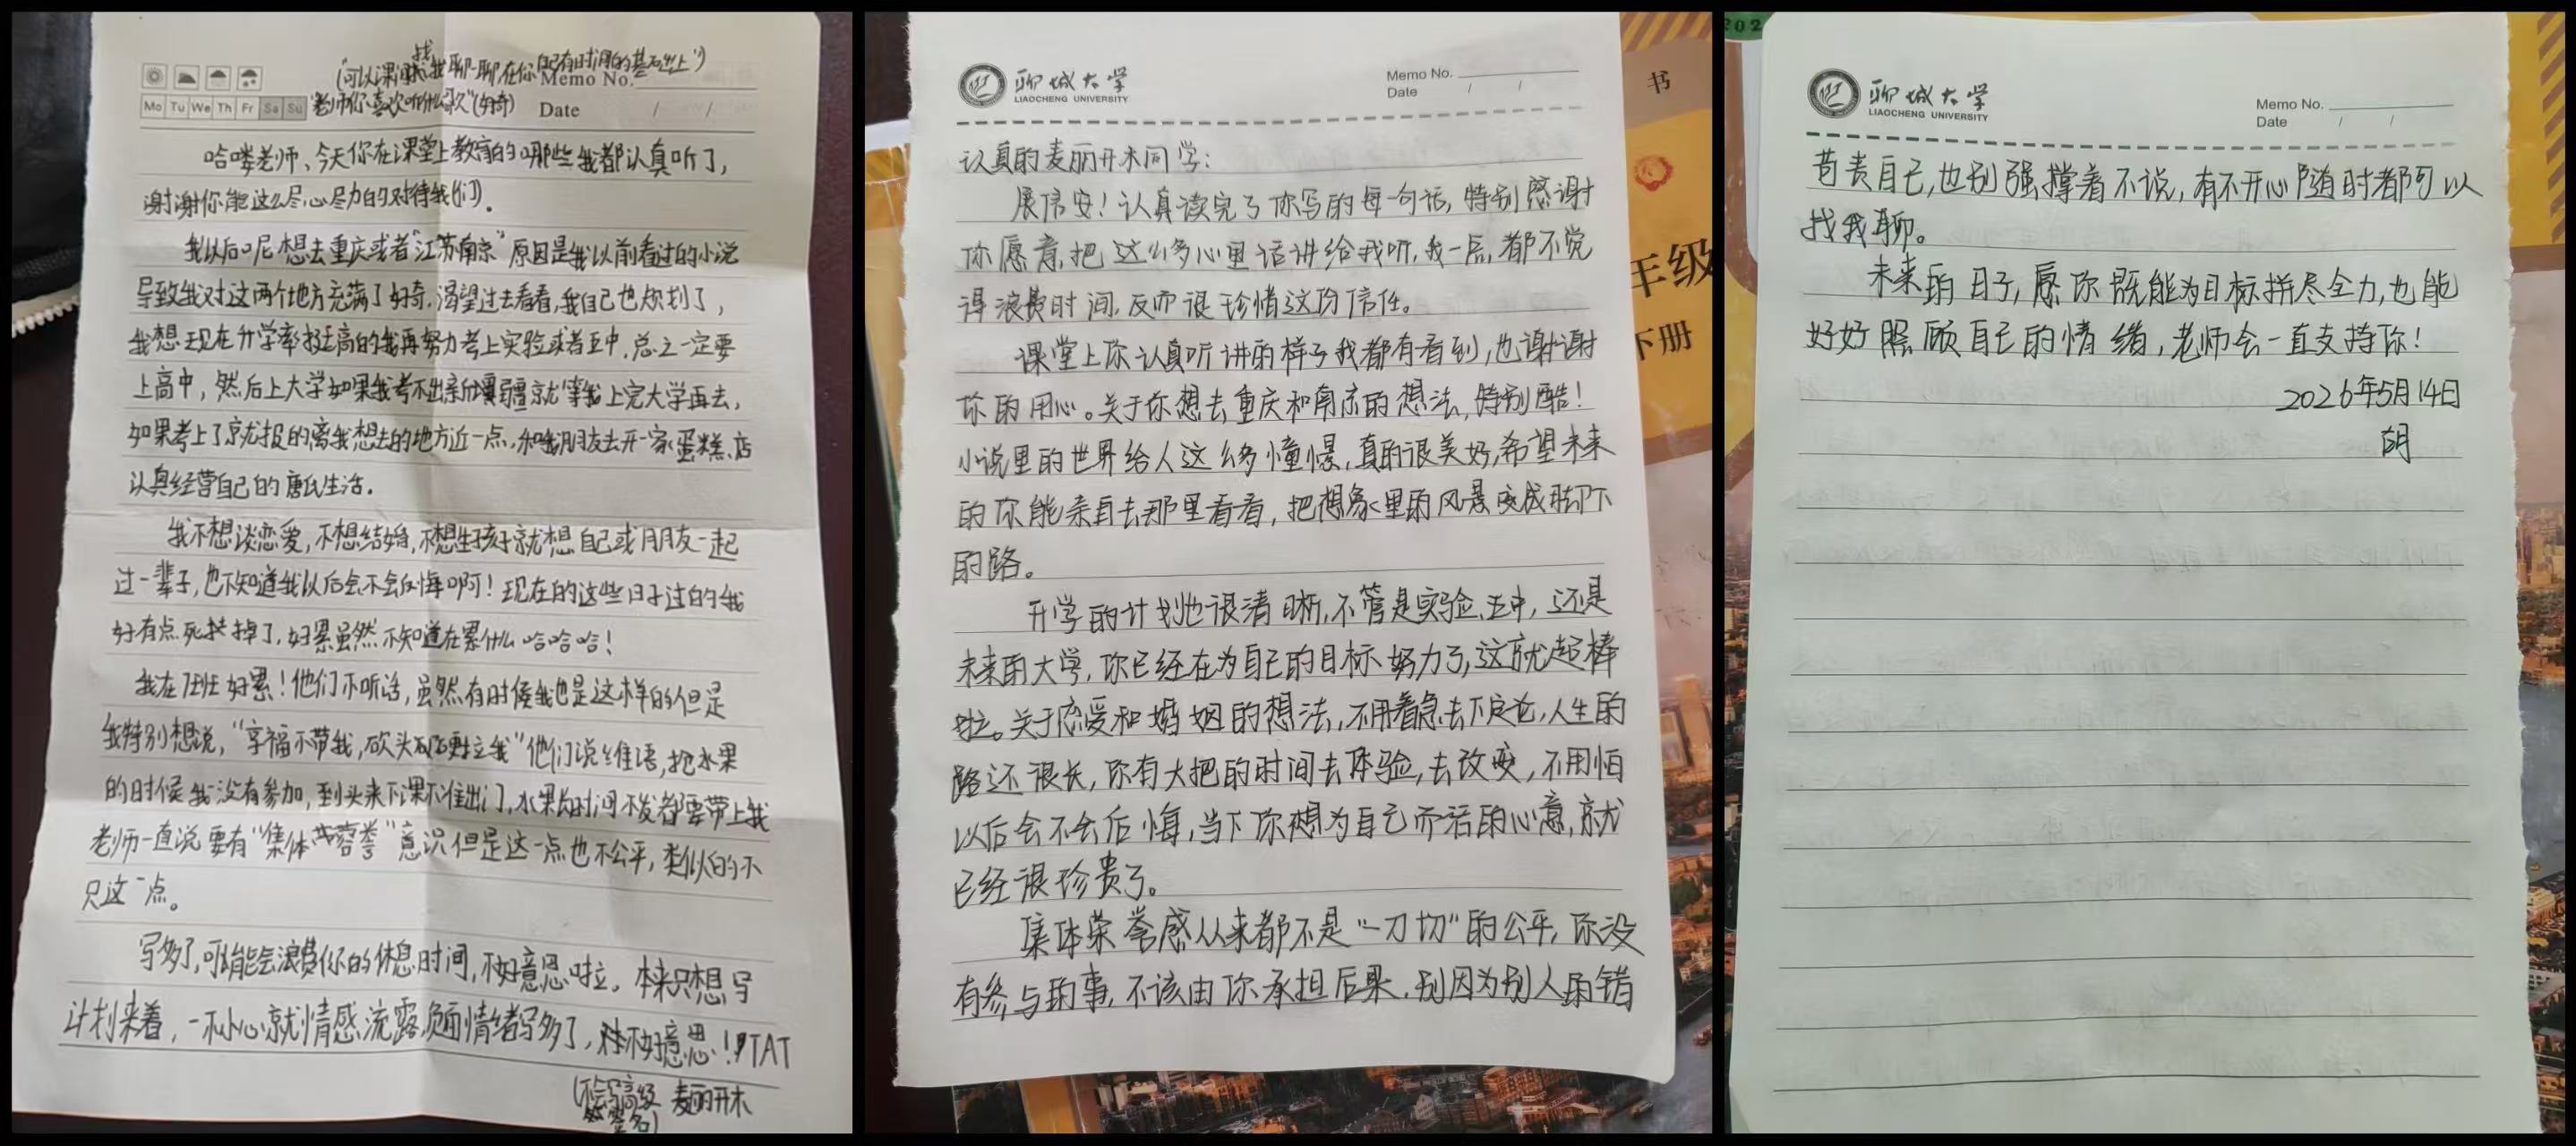 (可以课间找我聊一聊在你自己有时间的基础上')
Memo No.
Mo Tu We Th Fr Sa Su
"老师你喜欢听什么歌"(好奇)
Date / /
哈喽老师、今天你在课堂上教育的那些我都认真听了,
谢谢你能这么尽心尽力的对待我(们).
我以后呢想去重庆或者"江苏南京"原因是我以前看过的小说
导致我对这两个地方充满了好奇.渴望过去看看,我自己也规划了,
我想现在升学率挺高的我再努力考上实验或者五中.总之一定要
上高中,然后上大学如果我考不出新疆就等我上完大学再去,
如果考上了就报的离我想去的地方近一点.和我朋友去开一家蛋糕店
认真经营自己的生活.
我不想谈恋爱,不想结婚,不想生孩子就想自己或朋友一起
过一辈子,也不知道我以后会不会后悔啊!现在的这些日子过的我
好有点死掉了,好累虽然不知道在累什么哈哈哈!
我在7班好累!他们不听话,虽然有时候我也是这样的但是
我特别想说,"享福不带我,砍头硬拉我"他们说维语,把水果
的时候我没有参加,到头来下课不准出门,水果长时间不发都要带上我
老师一直说要有"集体荣誉"意识但是这一点也不公平,类似的不
只这一点。
写多了,可能会浪费你的休息时间,不好意思啦。本来只想写
计划来着,一不小心就情感流露,负面情绪写多了,不好意思!TAT
(不会写高级签名) 麦丽开木
聊城大学
LIAOCHENG UNIVERSITY
Memo No.
Date / /
认真的麦丽开木同学:
展信安!认真读完了你写的每一句话,特别感谢
你愿意把这么多心里话讲给我听,我一点都不觉
得浪费时间,反而很珍惜这份信任。
课堂上你认真听讲的样子我都有看到,也谢谢
你的用心。关于你想去重庆和南京的想法,特别酷!
小说里的世界给人这么多憧憬,真的很美好,希望未来
的你能亲自去那里看看,把想象里的风景变成脚下
的路。
升学的计划也很清晰,不管是实验、五中,还是
未来的大学,你已经在为自己的目标努力了,这就超棒
啦。关于恋爱和婚姻的想法,不用着急去下定论,人生的
路还很长,你有大把的时间去体验,去改变,不用怕
以后会不会后悔,当下你想为自己而活的心意,就
已经很珍贵了。
集体荣誉感从来都不是"一刀切"的公平,你没
有参与的事,不该由你承担后果.别因为别人的错
书
年级
下册
202
聊城大学
LIAOCHENG UNIVERSITY
Memo No.
Date / /
苛责自己,也别强撑着不说,有不开心随时都可以
找我聊。
未来的日子,愿你既能为目标拼尽全力,也能
好好照顾自己的情绪,老师会一直支持你!
2026年5月14日
胡